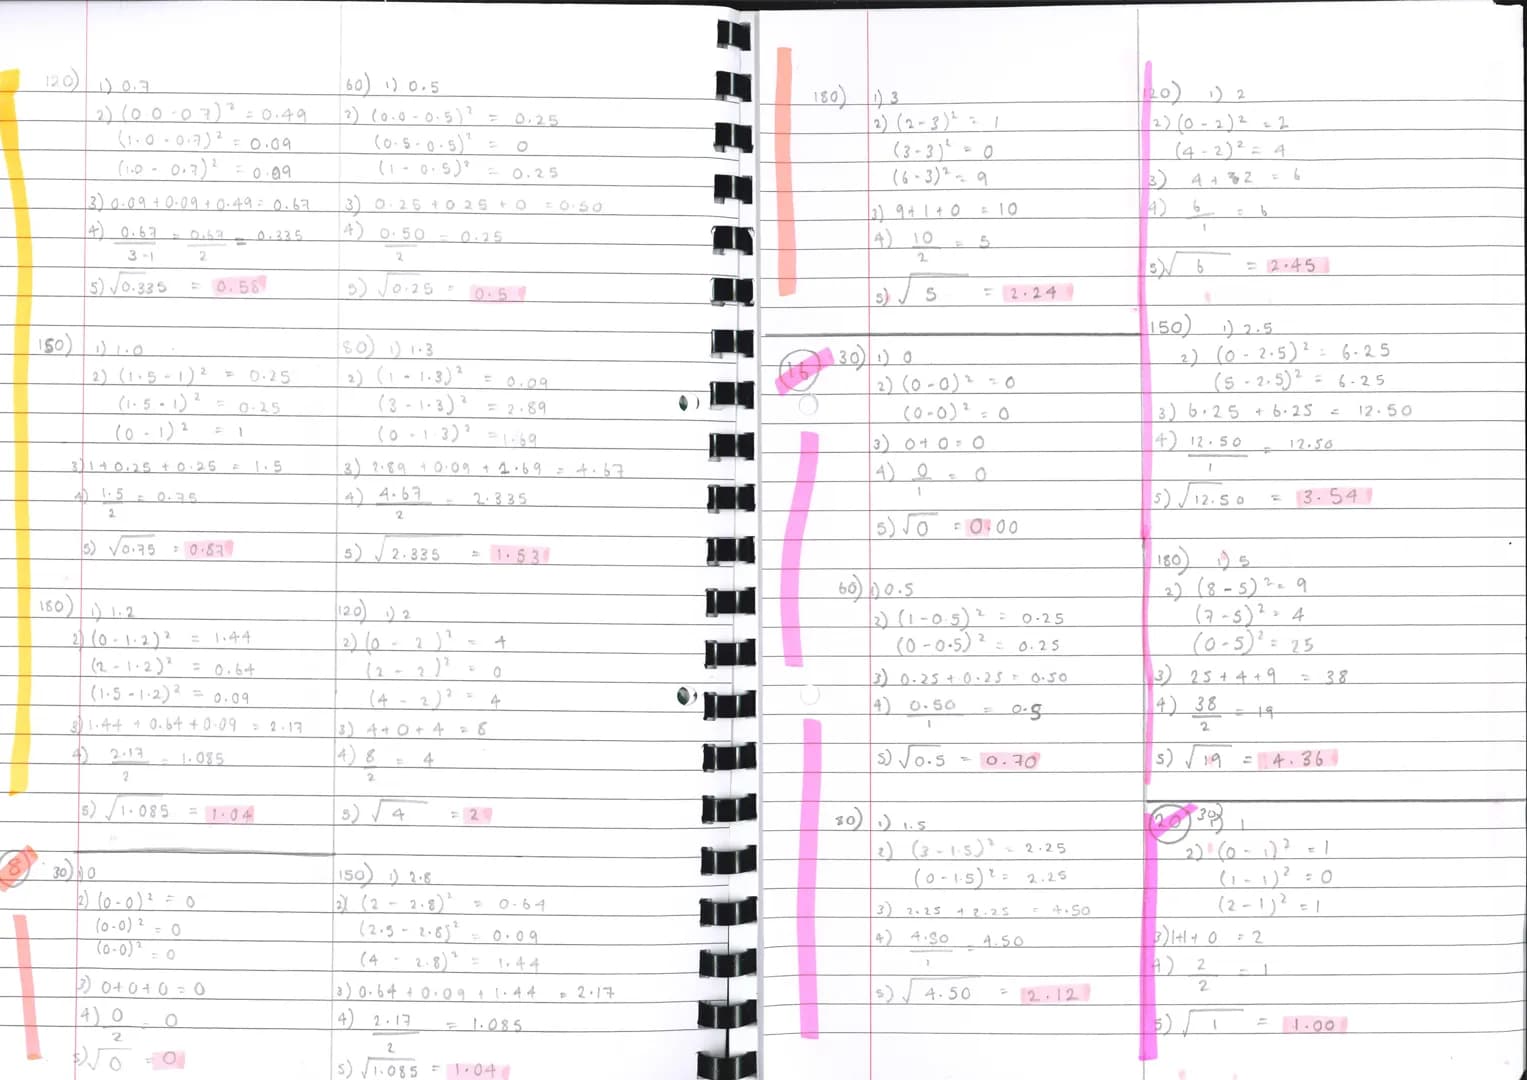 120) 1) 0.7
2) (0.0 - 0.7)² = 0.49
(1.0 - 0.7)² = 0.09
(1.0 - 0.7)² = 0.09
3) 0.09 + 0.09 + 0.49 = 0.67
4) 0.67 / 3-1 = 0.67 / 2 = 0.335
5) √0.335 = 0.58
150) 1) 1.0
2) (1.5 - 1)² = 0.25
(1.5 - 1)² = 0.25
(0 - 1)² = 1
3) 1 + 0.25 + 0.25 = 1.5
4) 1.5 / 2 = 0.75
5) √0.75 = 0.87
180) 1) 1.2
2) (0 - 1.2)² = 1.44
(2 - 1.2)² = 0.64
(1.5 - 1.2)² = 0.09
3) 1.44 + 0.64 + 0.09 = 2.17
4) 2.17 / 2 = 1.085
5) √1.085 = 1.04
8 30) 1) 0
2) (0-0)² = 0
(0-0)² = 0
(0-0)² = 0
3) 0+0+0 = 0
4) 0 / 2 = 0
5) √0 = 0
60) 1) 0.5
2) (0.0 - 0.5)² = 0.25
(0.5 - 0.5)² = 0
(1 - 0.5)² = 0.25
3) 0.25 + 0.25 + 0 = 0.50
4) 0.50 / 2 = 0.25
5) √0.25 = 0.5
80) 1) 1.3
2) (1 - 1.3)² = 0.09
(3 - 1.3)² = 2.89
(0 - 1.3)² = 1.69
3) 2.89 + 0.09 + 1.69 = 4.67
4) 4.67 / 2 = 2.335
5) √2.335 = 1.53
120) 1) 2
2) (0 - 2)² = 4
(2 - 2)² = 0
(4 - 2)² = 4
3) 4 + 0 + 4 = 8
4) 8 / 2 = 4
5) √4 = 2
150) 1) 2.8
2) (2 - 2.8)² = 0.64
(2.5 - 2.8)² = 0.09
(4 - 2.8)² = 1.44
3) 0.64 + 0.09 + 1.44 = 2.17
4) 2.17 / 2 = 1.085
5) √1.085 = 1.04
180) 1) 3
2) (2-3)² = 1
(3-3)² = 0
(6-3)² = 9
3) 9+1+0 = 10
4) 10 / 2 = 5
5) √5 = 2.24
16 30) 1) 0
2) (0-0)² = 0
(0-0)² = 0
3) 0+0 = 0
4) 0 / 1 = 0
5) √0 = 0.00
60) 1) 0.5
2) (1-0.5)² = 0.25
(0-0.5)² = 0.25
3) 0.25 + 0.25 = 0.50
4) 0.50 / 1 = 0.5
5) √0.5 = 0.70
80) 1) 1.5
2) (3-1.5)² = 2.25
(0-1.5)² = 2.25
3) 2.25 + 2.25 = 4.50
4) 4.50 / 1 = 4.50
5) √4.50 = 2.12
120) 1) 2
2) (0-2)² = 2
(4-2)² = 4
3) 4 + 2 = 6
4) 6 / 1 = 6
5) √6 = 2.45
150) 1) 2.5
2) (0-2.5)² = 6.25
(5-2.5)² = 6.25
3) 6.25 + 6.25 = 12.50
4) 12.50 / 1 = 12.50
5) √12.50 = 3.54
180) 1) 5
2) (8-5)² = 9
(7-5)² = 4
(0-5)² = 25
3) 25 + 4 + 9 = 38
4) 38 / 2 = 19
5) √19 = 4.36
20 30) 1) 1
2) (0-1)² = 1
(1-1)² = 0
(2-1)² = 1
3) 1+1+0 = 2
4) 2 / 2 = 1
5) √1 = 1.00